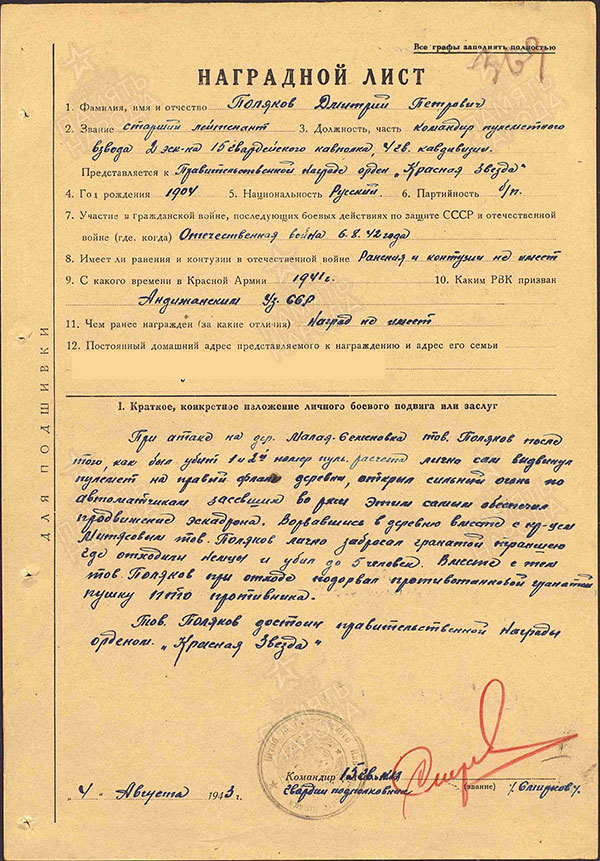 Все графы заполнять полностью
НАГРАДНОЙ ЛИСТ
1. Фамилия, имя и отчество Поляков Дмитрий Петрович
2. Звание старший лейтенант 3. Должность, часть командир пулеметного
взвода 2 эск-на 15 гвардейского кавполка, 4 гв. кавдивизии.
Представляется к Правительственной награде орден „Красная Звезда"
4. Год рождения 1904 5. Национальность Русский 6. Партийность б/п.
7. Участие в гражданской войне, последующих боевых действиях по защите СССР и отечественной
войне (где, когда) Отечественная война 6.8.42 года
8. Имеет ли ранения и контузии в отечественной войне Ранения и контузии не имеет
9. С какого времени в Красной Армии 1941 г. 10. Каким РВК призван
Андижанским Уз. ССР
11. Чем ранее награжден (за какие отличия) Наград не имеет
12. Постоянный домашний адрес представляемого к награждению и адрес его семьи
ДЛЯ ПОДШИВКИ
I. Краткое, конкретное изложение личного боевого подвига или заслуг
При атаке на дер. Малая-Семеновка тов. Поляков после
того, как был убит 1 и 2й номер пул. расчета лично сам выдвинул
пулемет на правый фланг деревни, открыл сильный огонь по
автоматчикам засевшим во ржи этим самым обеспечил
продвижение эскадрона. Ворвавшись в деревню вместе с кр-цем
Митясовым тов. Поляков лично забросал гранатой траншею
где отходили немцы и убил до 5 человек. Вместе с тем
тов. Поляков при отходе подорвал противотанковой гранатой
пушку ПТО противника.
Тов. Поляков достоин правительственной награды
орденом „Красная Звезда"
Командир 15 гв. кп
гвардии подполковник (звание) /Смирнов/.
"4" Августа 1943 г.